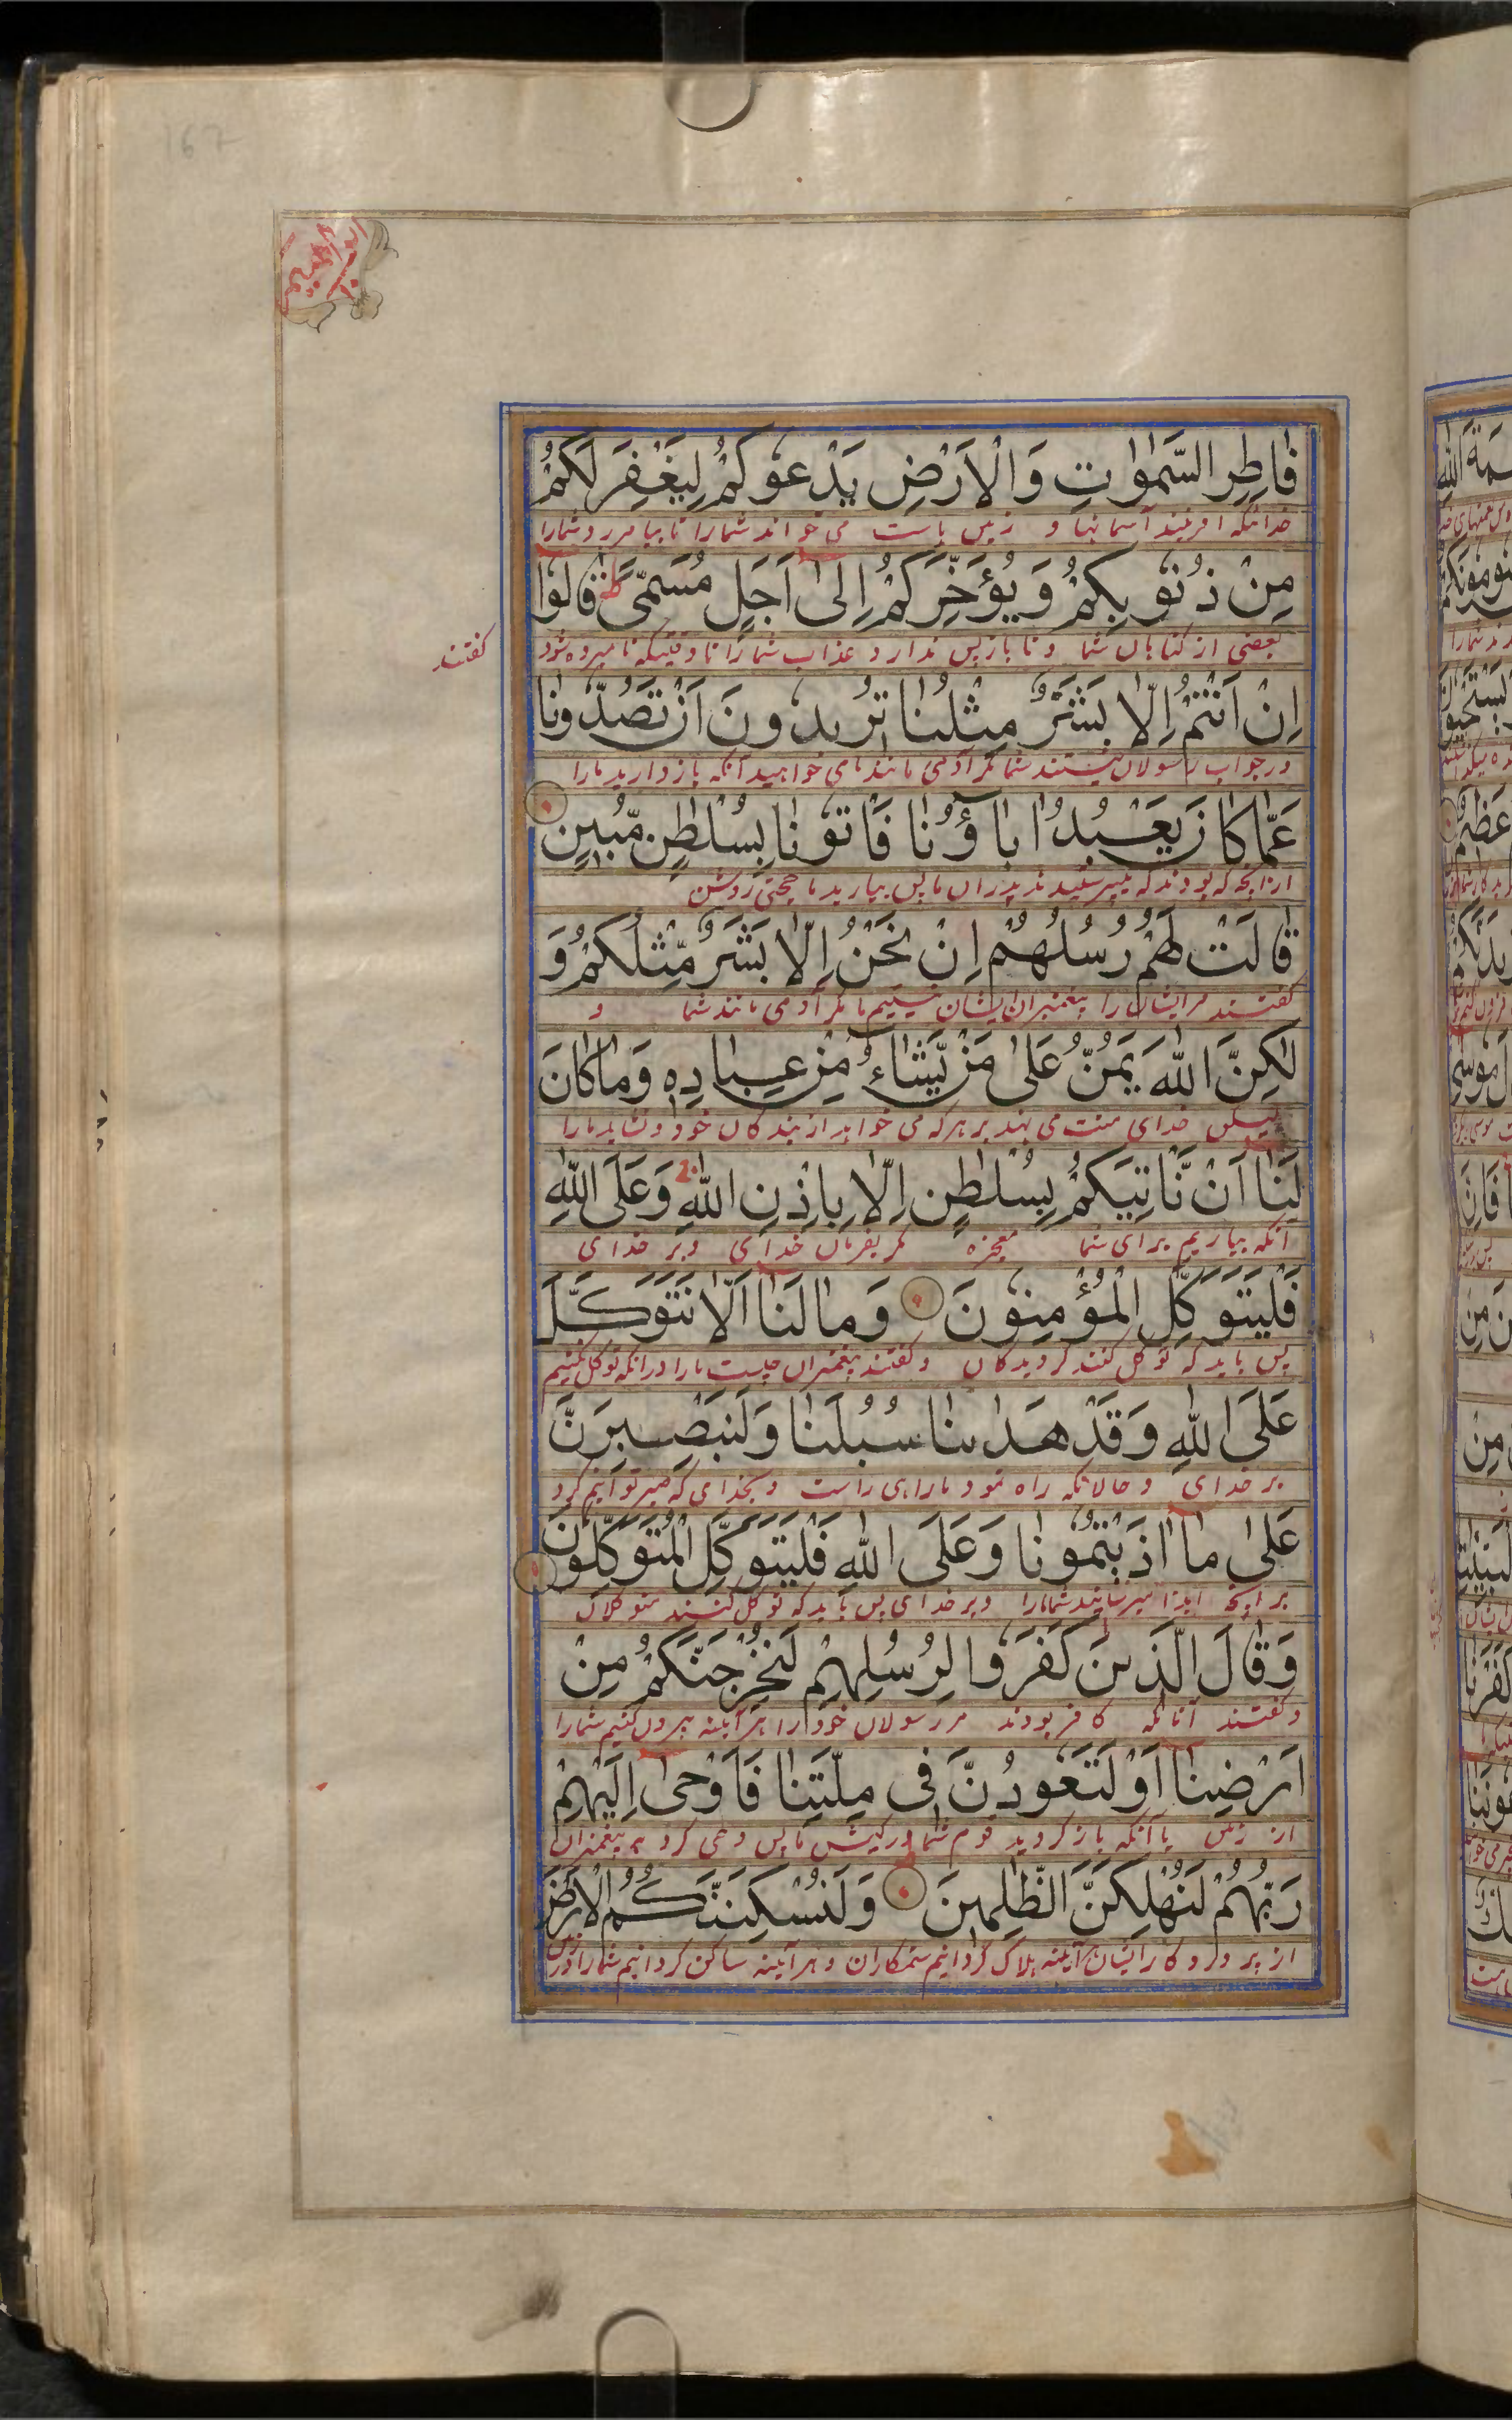 167
ابراهيم
فٰاطِرِ السَّمٰوٰتِ وَالْاَرْضِ يَدْعُوكُمْ لِيَغْفِرَ لَكُمْ
خدائیکه افرینند آسمانها و زمین یاست می خواند شمارا تا بیامرزد شمارا
مِنْ ذُنُوبِكُمْ وَيُؤَخِّرَكُمْ اِلىٰ اَجَلٍ مُسَمًّى ط قٰالُوا
بعضی از کناهان شما و تا بازپس ندارد عذاب شما را تا وقتیکه نامبرده شود
کفتند
اِنْ اَنْتُمْ اِلّٰا بَشَرٌ مِثْلُنٰا تُرِيدُونَ اَنْ تَصُدُّونٰا
در جواب رسولان نیستند شما مکر آدمی مانند ما می خواهید آنکه بازدارید مارا
عَمّٰا كٰانَ يَعْبُدُ اٰبٰاؤُنٰا فَاْتُونٰا بِسُلْطٰنٍ مُّبِينٍ
ازانچه که بودند که میپرستیدند پدران ما پس بیارید ما حجتی روشن
قٰالَتْ لَهُمْ رُسُلُهُمْ اِنْ نَحْنُ اِلّٰا بَشَرٌ مِّثْلُكُمْ وَ
کفتند مرایشان را پیغمبران ایشان نیستیم ما مکر آدمی مانند شما و
لٰكِنَّ اللّٰهَ يَمُنُّ عَلىٰ مَنْ يَّشٰاءُ مِنْ عِبٰادِهٖ وَمٰا كٰانَ
لیکن خدای منت می نهد بر هرکه می خواهد از بندکان خود و نشاید مارا
لَنٰا اَنْ نَّاْتِيَكُمْ بِسُلْطٰنٍ اِلّٰا بِاِذْنِ اللّٰهِ وَعَلَى اللّٰهِ
آنکه بیاریم برای شما معجزه مکر بفرمان خدای و بر خدای
فَلْيَتَوَكَّلِ الْمُؤْمِنُونَ وَمٰا لَنٰا اَلّٰا نَتَوَكَّلَ
پس باید که توکل کنند کرویدکان و کفتند پیغمبران چیست مارا درانکه توکل نکنیم
عَلَى اللّٰهِ وَقَدْ هَدٰىنٰا سُبُلَنٰا وَلَنَصْبِرَنَّ
بر خدای و حالانکه راه نمود مارا راهی راست و بخدای که صبر توانیم کرد
عَلىٰ مٰا اٰذَيْتُمُونٰا وَعَلَى اللّٰهِ فَلْيَتَوَكَّلِ الْمُتَوَكِّلُونَ
بر آنچه ایذا میرسانید شمامارا و بر خدای پس باید که توکل کنند متوکلان
وَقٰالَ الَّذِينَ كَفَرُوا لِرُسُلِهِمْ لَنُخْرِجَنَّكُمْ مِنْ
و کفتند آنانکه کافر بودند مر رسولان خود را هر آینه بیرون کنیم شمارا
اَرْضِنٰا اَوْ لَتَعُودُنَّ فِى مِلَّتِنٰا فَاَوْحىٰ اِلَيْهِمْ
از زمین یا آنکه باز کردید قوم شما در کیش ما پس وحی کرد به پیغمبران
رَبُّهُمْ لَنُهْلِكَنَّ الظّٰلِمِينَ وَلَنُسْكِنَنَّكُمُ الْاَرْضَ
از پروردکار ایشان هر آینه هلاک کردانیم ستمکاران و هر آینه ساکن کردانیم شمارا در زمین